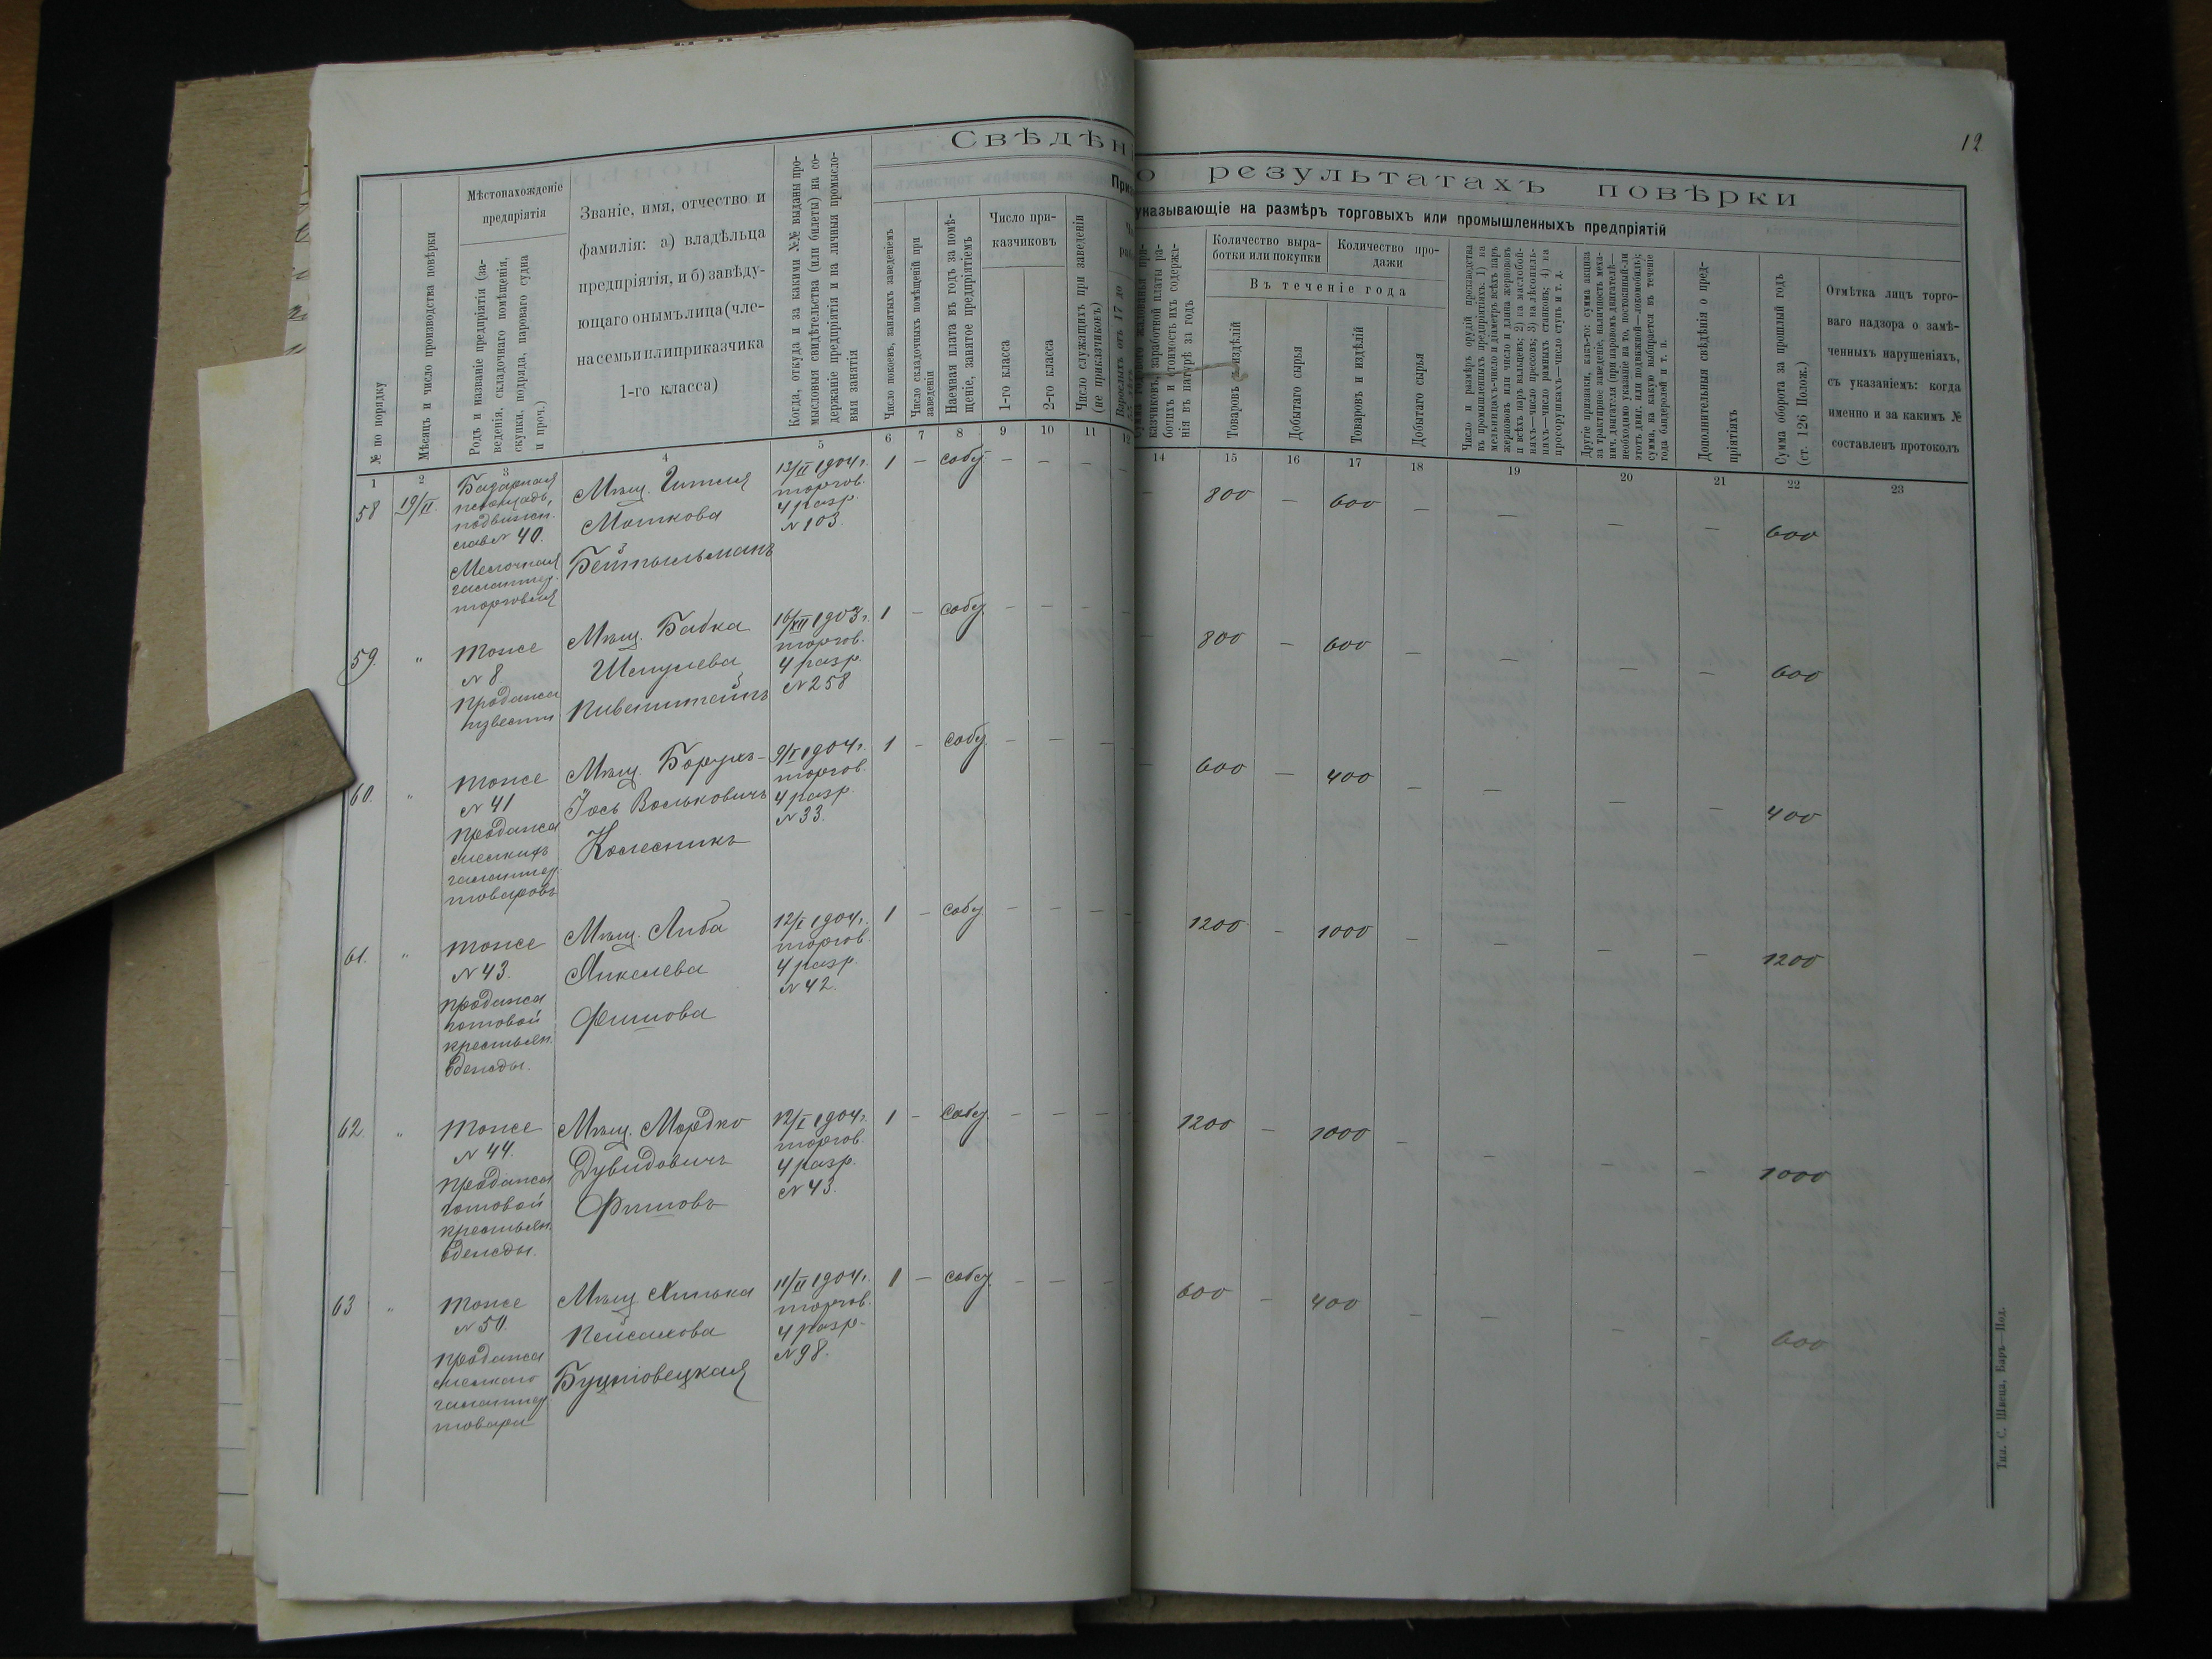 12
Свѣдѣн
о результатахъ повѣрки
Приз
указывающіе на размѣръ торговыхъ или промышленныхъ предпріятій
№ по порядку
Мѣсяцъ и число производства повѣрки
Мѣстонахожденіе
предпріятія
Родъ и названіе предпріятія (за-
веденія, складочнаго помѣщенія,
скупки, подряда, парового судна
и проч.)
Званіе, имя, отчество и
фамилія: а) владѣльца
предпріятія, и б) завѣду-
ющаго онымъ лица (чле-
на семьи или приказчика
1-го класса)
Когда, откуда и за какими №№ выданы про-
мысловыя свидѣтельства (или билеты) на со-
держаніе предпріятія и на личныя промысло-
выя занятія
Число покоевъ, занятыхъ заведеніемъ
Число складочныхъ помѣщеній при
заведеніи
Наемная плата въ годъ за помѣ-
щеніе, занятое предпріятіемъ
Число при-
казчиковъ
1-го класса
2-го класса
Число служащихъ при заведеніи
(не приказчиковъ)
казчиковъ, заработной платы ра-
бочихъ и стоимость ихъ содержа-
нія въ натурѣ за годъ
Количество выра-
ботки или покупки
Количество про-
дажи
Въ теченіе года
Товаровъ и издѣлій
Добытаго сырья
Товаровъ и издѣлій
Добытаго сырья
Число и размѣръ орудій производства
въ промышленныхъ предпріятіяхъ: 1) на
мельницахъ—число и діаметръ всѣхъ паръ
жернововъ или число и длина жернововъ
и всѣхъ паръ вальцевъ; 2) на маслобой-
няхъ—число прессовъ; 3) на лѣсопиль-
няхъ—число рамныхъ станковъ; 4) на
просорушкахъ—число ступъ и т. д.
Другіе признаки, какъ-то: сумма акциза
за трактирное заведеніе, наличность меха-
нич. двигателя (при паровомъ двигателѣ—
необходимо указаніе на то, постоянный-ли
этотъ двиг. или подвижной—локомобиль);
сумма, на какую выбирается въ теченіе
года бандеролей и т. п.
Дополнительныя свѣдѣнія о пред-
пріятіяхъ
Сумма оборота за прошлый годъ
(ст. 126 Полож.)
Отмѣтка лицъ торго-
ваго надзора о замѣ-
ченныхъ нарушеніяхъ,
съ указаніемъ: когда
именно и за какимъ №
составленъ протоколъ
1 2 3 4 5 6 7 8 9 10 11 12 14 15 16 17 18 19 20 21 22 23
58 19/II. Базарная
площадь,
подвижн.
лав № 40.
Мелочная
галантер.
торговля
Мѣщ. Гитля
Мошкова
Бейтельманъ
13/II 1904 г.
торгов.
4 разр.
№ 103.
1 — собу. — — — — — 800 — 600 — — — — 600
59. " тоже
№ 8
Продажа
извести
Мѣщ. Бабка
Шмулева
Пивенштейнъ
16/XII 1903 г.
торгов.
4 разр.
№ 258
1 — собу. — — — — — 800 — 600 — — — — 600
60. " тоже
№ 41
Продажа
мелкихъ
галантер.
товаровъ
Мѣщ. Борухъ-
Іось Вольковичъ
Колесникъ
9/I 1904 г.
торгов.
4 разр.
№ 33.
1 — собу. — — — — — 600 — 400 — — — — 400
61. " тоже
№ 43.
Продажа
готовой
крестьян.
одежды.
Мѣщ. Либа
Микелева
Фишова
12/I 1904 г.
торгов.
4 разр.
№ 42.
1 — собу. — — — — — 1200 — 1000 — — — — 1200
62. " тоже
№ 44.
Продажа
готовой
крестьян.
одежды.
Мѣщ. Мордко
Дувидовичъ
Фишовъ
12/I 1904 г.
торгов.
4 разр.
№ 43.
1 — собу. — — — — 1200 — 1000 — — — — 1000
63 " тоже
№ 50.
Продажа
мелкаго
галантер.
товара
Мѣщ Хинька
Пейсахова
Буцніовецкая
11/II 1904 г.
торгов.
4 разр.
№ 98.
1 — собу. — — — 600 — 400 — — — — 600
Тип. С. Швеца, Баръ—Под.